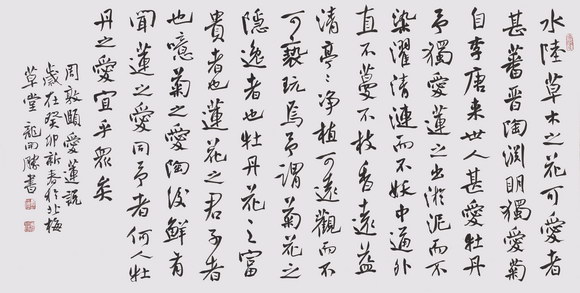 水陸草木之花可愛者
甚蕃晉陶渊明獨愛菊
自李唐来世人甚愛牡丹
予獨愛蓮之出淤泥而不
染濯清漣而不妖中通外
直不蔓不枝香遠益
清亭〻净植可遠觀而不
可褻玩焉予謂菊花之
隱逸者也牡丹花〻之富
貴者也蓮花之君子者
也噫菊之愛陶後鮮有
聞蓮之愛同予者何人牡
丹之愛宜乎眾矣
周敦頤愛蓮説
歲在癸卯新春於北梅
草堂 龍開勝書